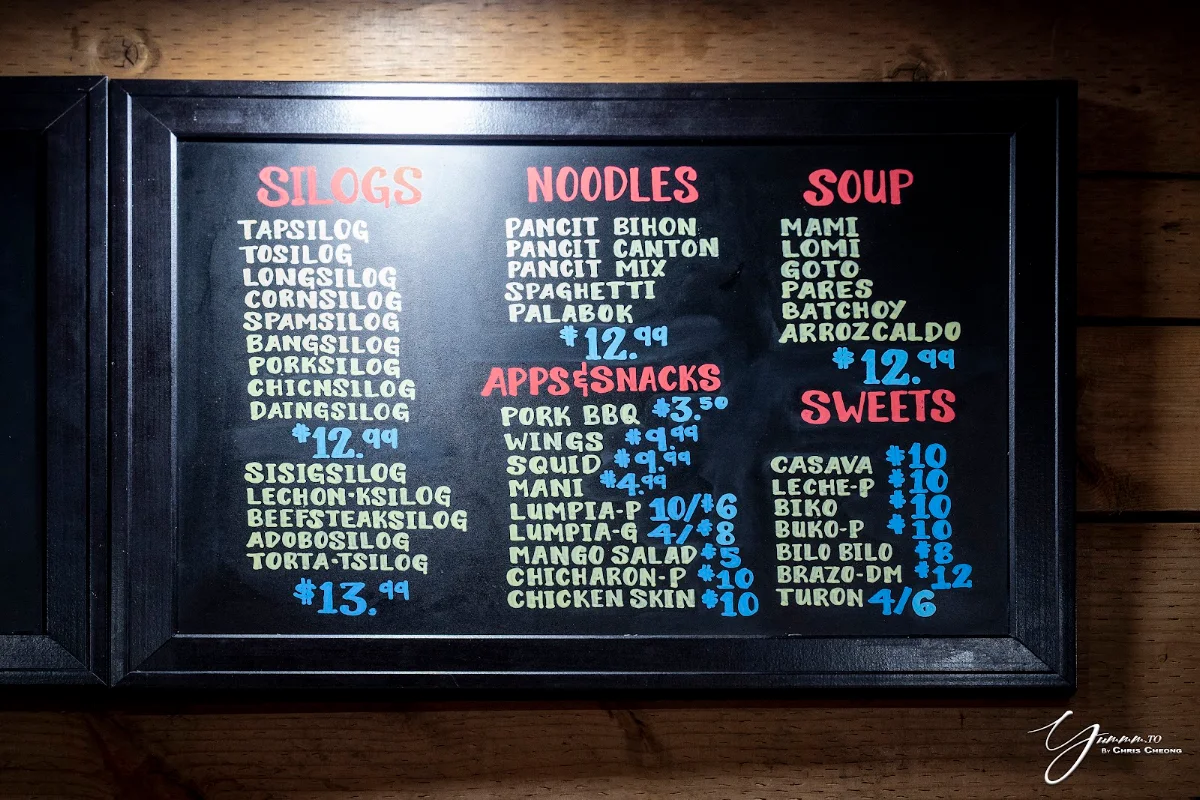 SILOGS
TAPSILOG
TOSILOG
LONGSILOG
CORNSILOG
SPAMSILOG
BANGSILOG
PORKSILOG
CHICNSILOG
DAINGSILOG
$12.99
SISIGSILOG
LECHON-KSILOG
BEEFSTEAKSILOG
ADOBOSILOG
TORTA-TSILOG
$13.99
NOODLES
PANCIT BIHON
PANCIT CANTON
PANCIT MIX
SPAGHETTI
PALABOK
$12.99
APPS&SNACKS
PORK BBQ $3.50
WINGS $9.99
SQUID $9.99
MANI $4.99
LUMPIA-P 10/$6
LUMPIA-G 4/$8
MANGO SALAD $5
CHICHARON-P $10
CHICKEN SKIN $10
SOUP
MAMI
LOMI
GOTO
PARES
BATCHOY
ARROZCALDO
$12.99
SWEETS
CASAVA $10
LECHE-P $10
BIKO $10
BUKO-P $10
BILO BILO $8
BRAZO-DM $12
TURON 4/6
Yummm.TO
BY CHRIS CHEONG